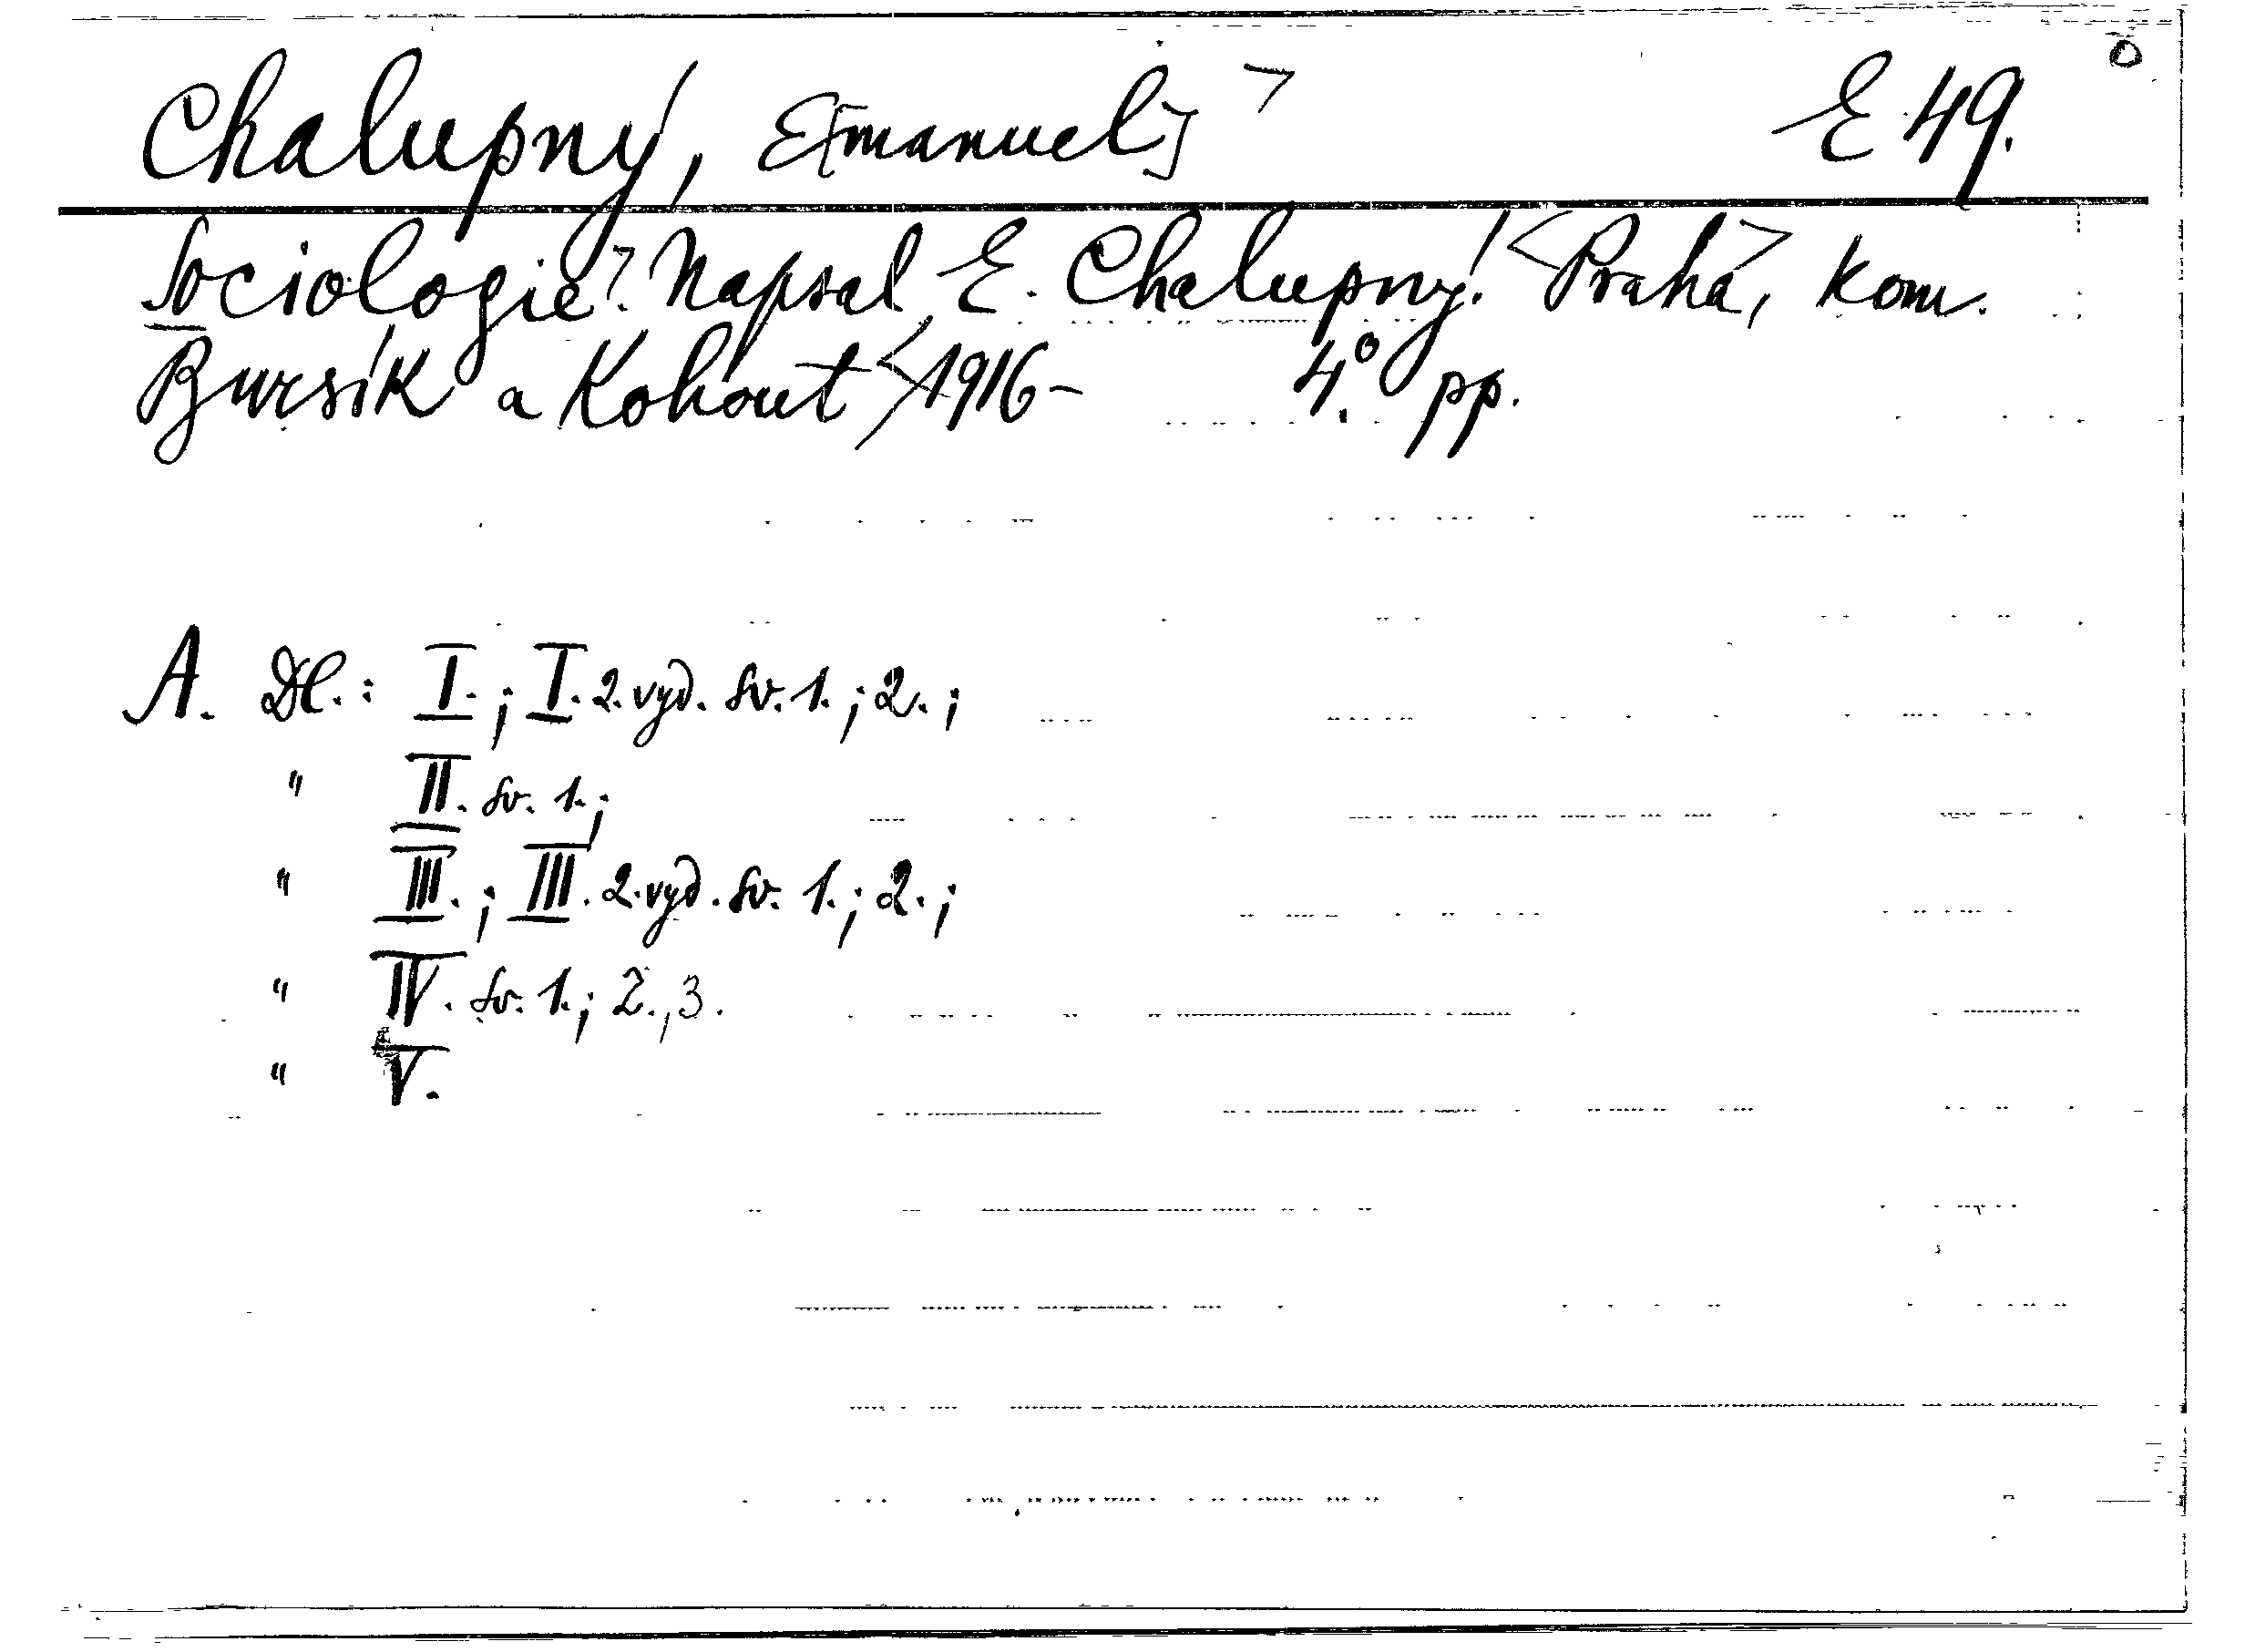 Chalupný, E[manuel] > E 49.
Sociologie>. Napsal E. Chalupný. <Praha>, kom.
Bursík a Kohout <1916- 4.° pp.
A. Dl.: I.; I. 2. vyd. sv. 1.; 2.;
" II. sv. 1.;
" III.; III. 2. vyd. sv. 1.; 2.;
" IV. sv. 1.; 2., 3.
" V.